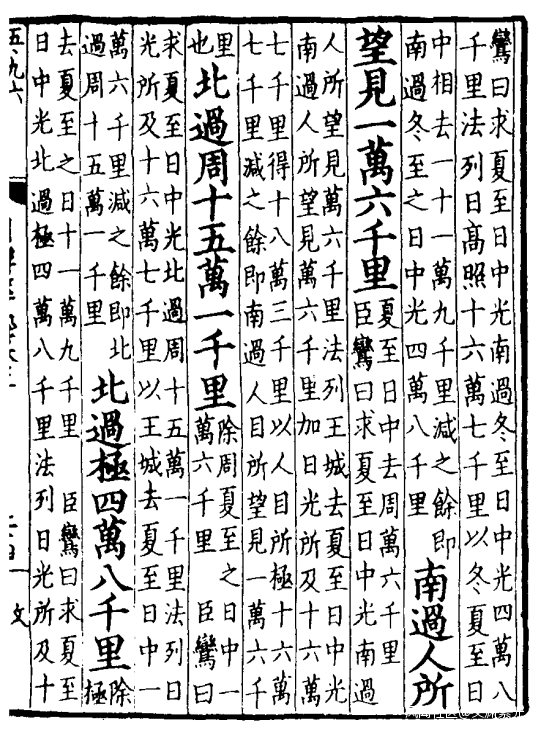 鸞曰求夏至日中光南過冬至日中光四萬八
千里法列日髙照十六萬七千里以冬夏至日
中相去一十一萬九千里減之餘即
南過冬至之日中光四萬八千里
南過人所
望見一萬六千里
夏至日中去周萬六千里
臣鸞曰求夏至日中光南過
人所望見萬六千里法列王城去夏至日中光
南過人所望見萬六千里加日光所及十六萬
七千里得十八萬三千里以人目所極十六萬
七千里減之餘即南過人目所望見一萬六千
里
也
北過周十五萬一千里
除周夏至之日中一
萬六千里 臣鸞曰
求夏至日中光北過周十五萬一千里法列日
光所及十六萬七千里以王城去夏至日中一
萬六千里減之餘即北
過周十五萬一千里
北過極四萬八千里
除
極
去夏至之日十一萬九千里 臣鸞曰求夏至
日中光北過極四萬八千里法列日光所及十
五九六
文